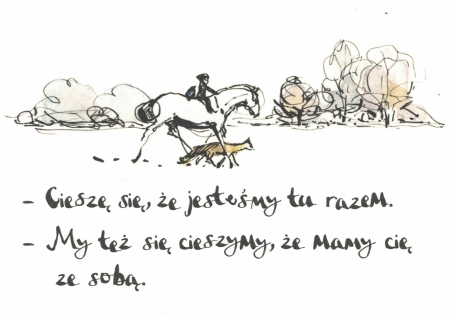 - Cieszę się, że jesteśmy tu razem.
- My też się cieszymy, że mamy cię
ze sobą.